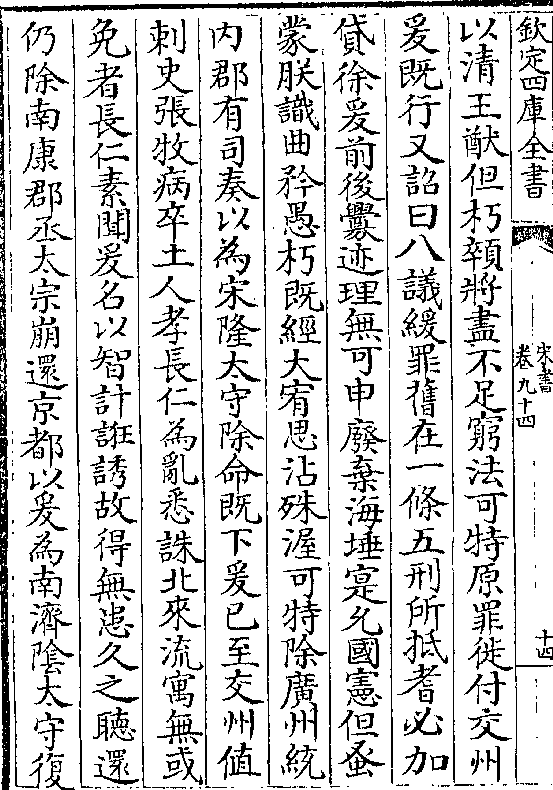 欽定四庫全書
宋書
卷九十四
十四
以清王猷但朽顇將盡不足窮法可特原罪徙付交州
爰既行又詔曰八議緩罪舊在一條五刑所抵耆必加
貸徐爰前後釁迹理無可申廢棄海埵寔允國憲但蚤
蒙朕識曲矜愚朽既經大宥思沾殊渥可特除廣州統
内郡有司奏以為宋隆太守除命既下爰已至交州值
刺史張牧病卒土人孝長仁為亂悉誅北來流寓無或
免者長仁素聞爰名以智計誑誘故得無患久之聽還
仍除南康郡丞太宗崩還京都以爰為南濟陰太守復